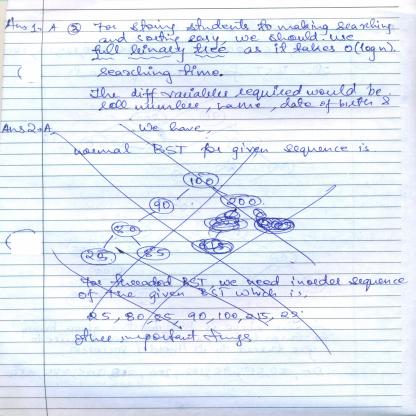 Ans 1- A ② For storing students to making searching
and sorting easy, we should use
full binary tree as it takes O(logn).
searching time.
The diff variables required would be
roll number, name, date of birth &
Ans 2-A. We have,
normal BST for given sequence is
100
90 200
20
25 85
For threaded BST, we need inorder sequence
of the given BST which is,
25, 80, 85, 90, 100, 215, 22
other important things